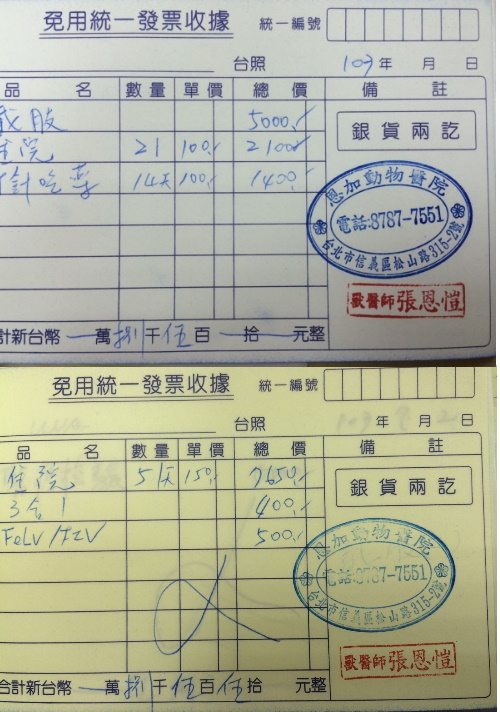 免用統一發票收據 統一編號
台照 103年 月 日
品 名 數量 單價 總 價 備 註
截肢 5000.
住院 21 100. 2100
打針吃藥 14天 100. 1400.
銀貨兩訖
恩加動物醫院
電話:8787-7551
台北市信義區松山路315-2號
獸醫師 張恩愷
合計新台幣 萬捌千伍百 拾 元整
免用統一發票收據 統一編號
台照 年 月 日
品 名 數量 單價 總 價 備 註
住院 51天 150. 7650.
3合1 400.
FeLV/FIV 500.
銀貨兩訖
恩加動物醫院
電話:8787-7551
台北市信義區松山路315-2號
獸醫師 張恩愷
合計新台幣 萬捌千伍百伍拾 元整